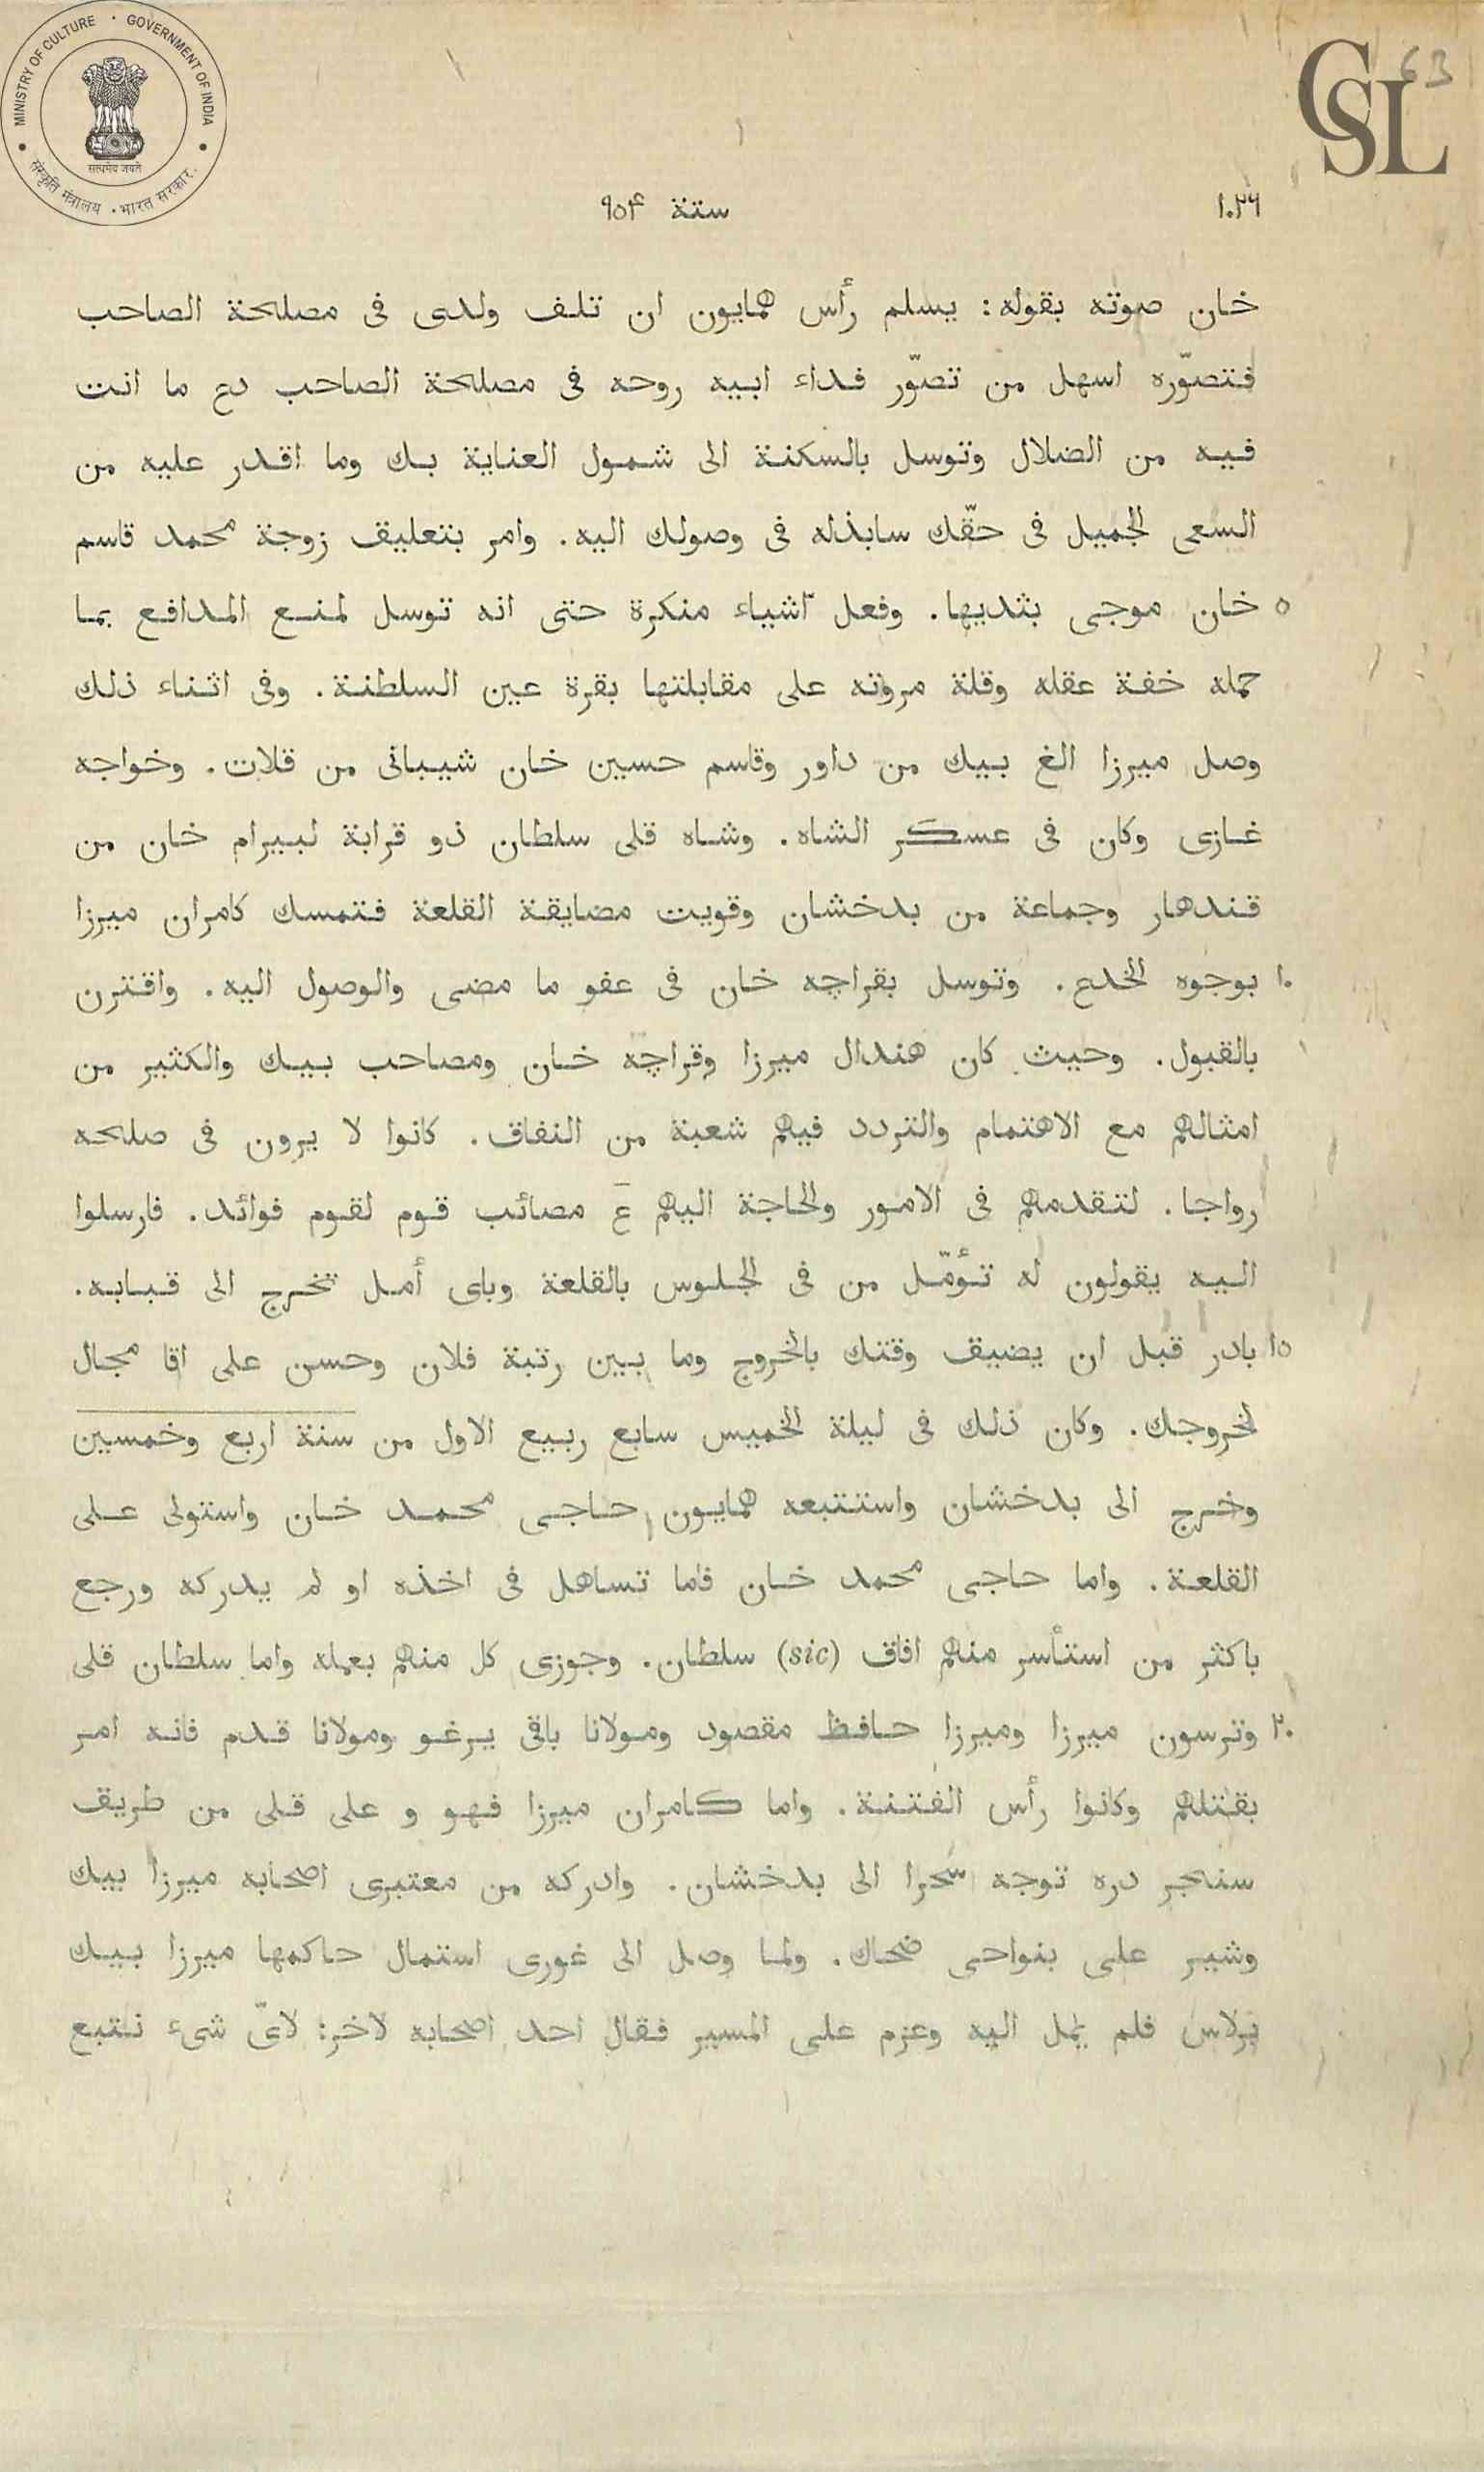 MINISTRY OF CULTURE · GOVERNMENT OF INDIA
सत्यमेव जयते
संस्कृति मंत्रालय · भारत सरकार
CSL
63
١٠٢٦ سنة ٩٥۴
خان صوته بقوله: يسلم رأس همايون ان تلف ولدى فى مصلحة الصاحب
فتصوّره اسهل من تصوّر فداء ابيه روحه فى مصلحة الصاحب دع ما انت
فيه من الضلال وتوسل بالسكنة الى شمول العناية بك وما اقدر عليه من
السعى الجميل فى حقّك سابذله فى وصولك اليه. وامر بتعليق زوجة محمد قاسم
٥ خان موجى بثديها. وفعل اشياء منكرة حتى انه توسل لمنع المدافع بما
حمله خفة عقله وقلة مروته على مقابلتها بقرة عين السلطنة. وفى اثناء ذلك
وصل ميرزا الغ بيك من داور وقاسم حسين خان شيبانى من قلات. وخواجه
غازى وكان فى عسكر الشاه. وشاه قلى سلطان ذو قرابة لبيرام خان من
قندهار وجماعة من بدخشان وقويت مضايقة القلعة فتمسك كامران ميرزا
١٠ بوجوه الخدع. وتوسل بقراچه خان فى عفو ما مضى والوصول اليه. واقترن
بالقبول. وحيث كان هندال ميرزا وقراچه خان ومصاحب بيك والكثير من
امثالهم مع الاهتمام والتردد فيهم شعبة من النفاق. كانوا لا يرون فى صلحه
رواجا. لتقدمهم فى الامور والحاجة اليهم ع مصائب قوم لقوم فوائد. فارسلوا
اليه يقولون له تؤمّل من فى الجلوس بالقلعة وباى أمل تخرج الى قبابه.
١٥ بادر قبل ان يضيق وقتك بالخروج وما بين رتبة فلان وحسن على اقا مجال
لخروجك. وكان ذلك فى ليلة الخميس سابع ربيع الاول من سنة اربع وخمسين
وخرج الى بدخشان واستتبعه همايون حاجى محمد خان واستولى على
القلعة. واما حاجى محمد خان فاما تساهل فى اخذه او لم يدركه ورجع
باكثر من استأسر منهم افاق (sic) سلطان. وجوزى كل منهم بعمله واما سلطان قلى
٢٠ وترسون ميرزا وميرزا حافظ مقصود ومولانا باقى يرغو ومولانا قدم فانه امر
بقتلهم وكانوا رأس الفتنة. واما كامران ميرزا فهو و على قلى من طريق
سنجر دره توجه سحرا الى بدخشان. وادركه من معتبرى اصحابه ميرزا بيك
وشير على بنواحى ضحاك. ولما وصل الى غورى استمال حاكمها ميرزا بيك
برلاس فلم يمل اليه وعزم على المسير فقال احد اصحابه لاخر: لاىّ شىء نتبع